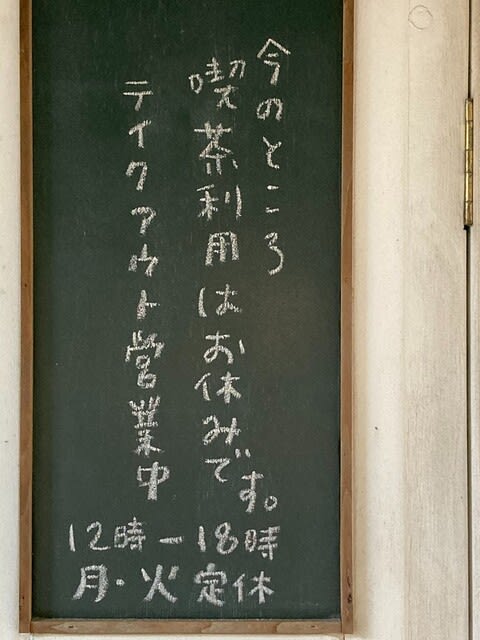 今のところ
喫茶利用はお休みです。
テイクアウト営業中
12時ー18時
月・火定休